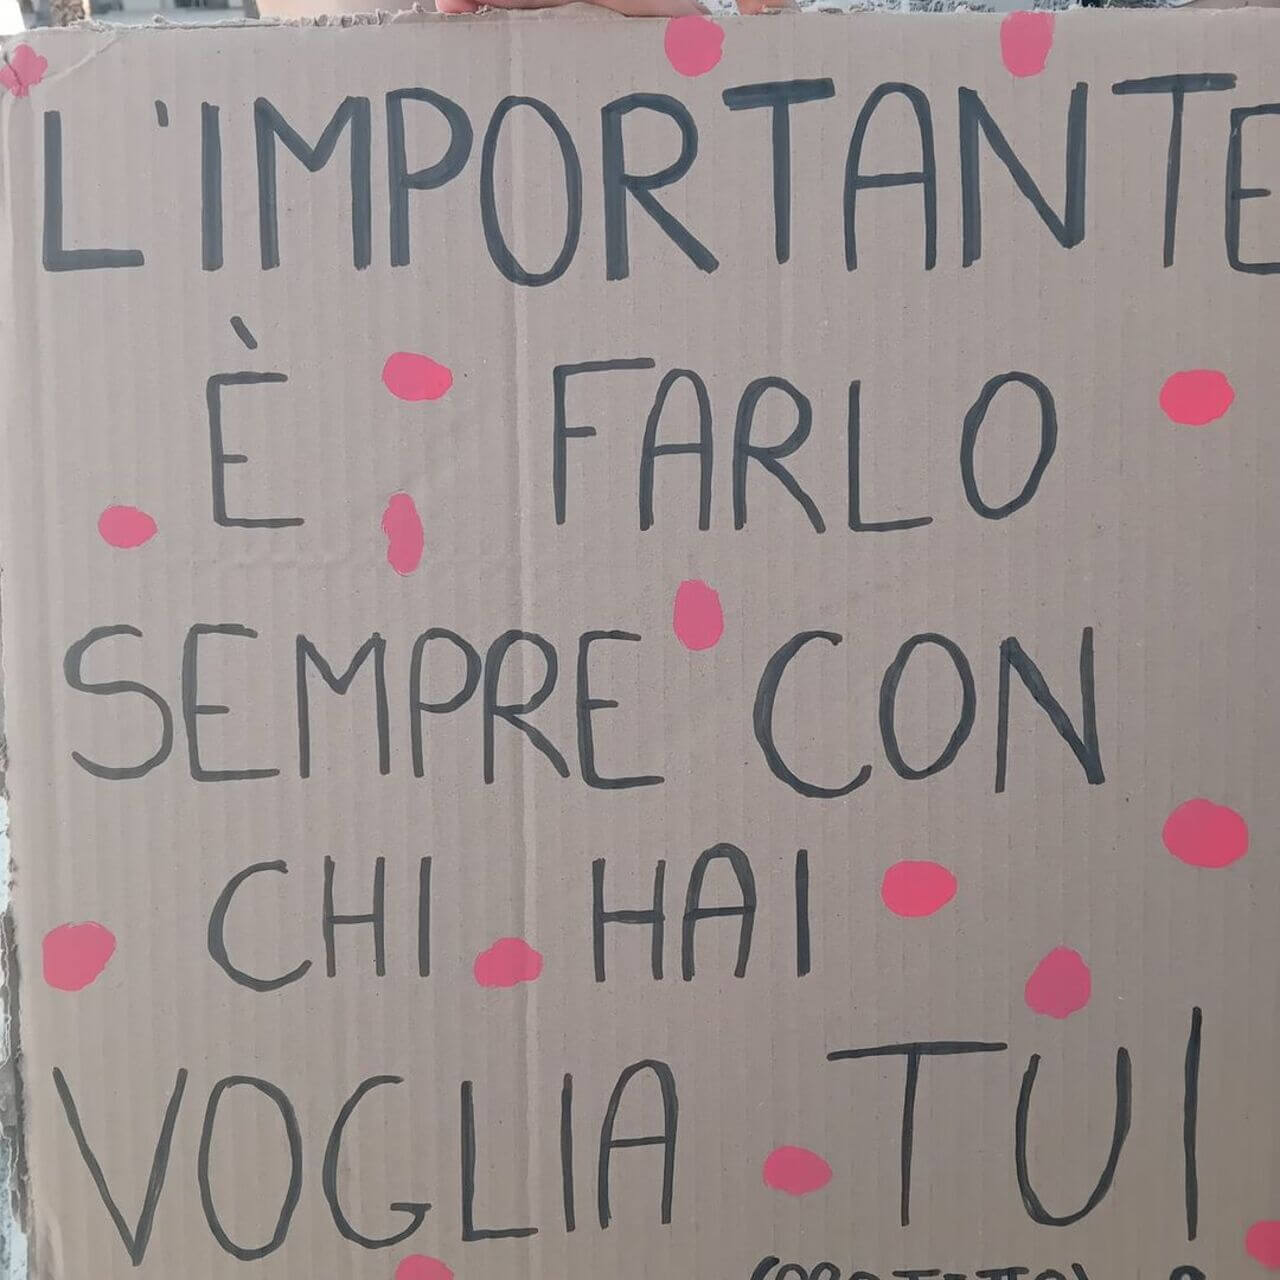 L'IMPORTANTE
È FARLO
SEMPRE CON
CHI HAI
VOGLIA TU!